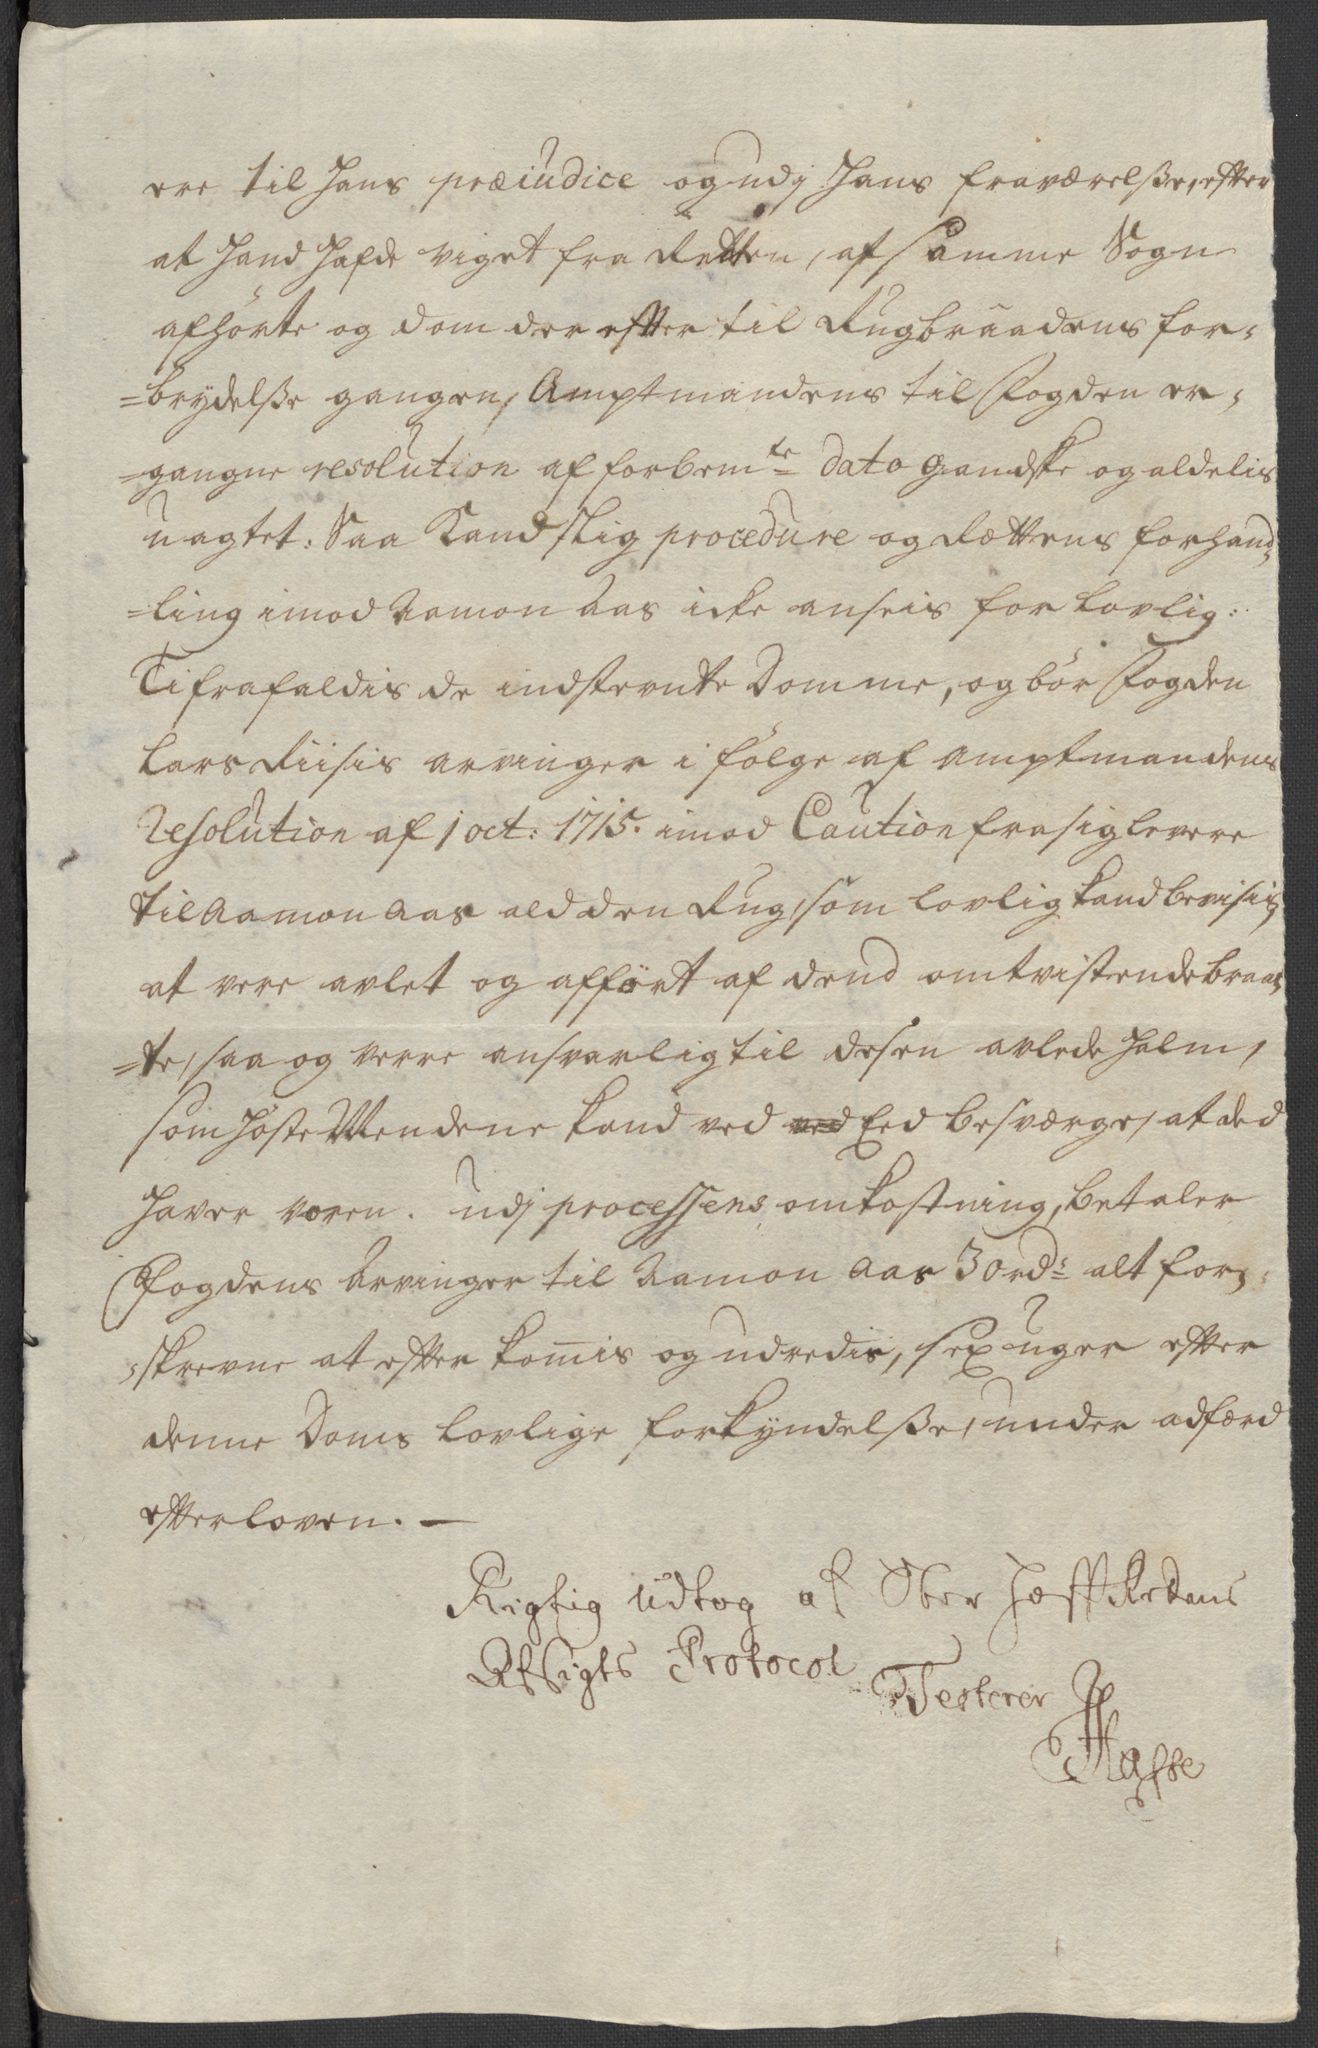 ere til hans præiudice og udj hans fraværelsße, efter
at hand hafde viget fra Retten, af samme Sogn
afhørte og dom der efter til Rugbraadens for=
=brydelße gangen, Amptmandens til Fogden er=
=gangne resolution af forbem:te dato gandske og aldelis
uagtet: Saa Kand slig procedure og Rettens forhand=
=ling imod Aamon Aas icke anseis for lovlig:
Ti frafaldis de indstevnte Domme, og bör Fogden
Lars Riisis arvinger i følge af Amptmandens
Resolution af 1 oct: 1715. imod Caution fra sig levere
til Aamon Aas ald den Rug, som lovlig kand bevisis,
at vere avlet og afført af dend omtvistende braa=
=te, saa og verre ansvarlig til desen avlede halm,
som höste Mendene kand ved Eed besværge, at ded
haver voren. Udj processens omkostning, betaler
Fogdens Arvinger til Aamon Aas 30 rd:r alt for=
=skrevne at efter komis og udredis, sex uger efter
denne Doms lovlige forkyndelße, under adfærd
efter loven. —
Rigtig Udtog af Ober Hoff Rettens
Afsigts Protocol
Testerer